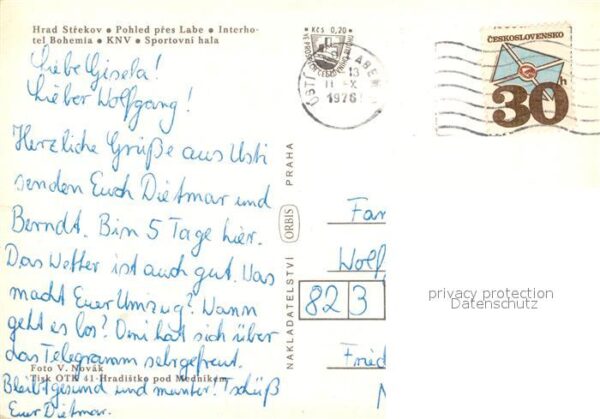 Hrad Střekov • Pohled přes Labe • Interho-
tel Bohemia • KNV • Sportovní hala
Kčs 0,20
ÚSTÍ LABEM
13
11-X
1976
ČESKOSLOVENSKO
30h
Liebe Gisela!
Lieber Wolfgang!
Herzliche Grüße aus Usti
senden Euch Dietmar und
Berndt. Bin 5 Tage hier.
Das Wetter ist auch gut. Was
macht Euer Umzug? Wann
geht es los? Omi hat sich über
das Telegramm sehr gefreut.
Foto V. Novák
Tisk OTK 41-Hradištko pod Medníkem
Bleibt gesund und munter! Tschüß
Euer Dietmar.
NAKLADATELSTVÍ ORBIS PRAHA
Fam
Wolf
82 3
Fried
privacy protection
Datenschutz